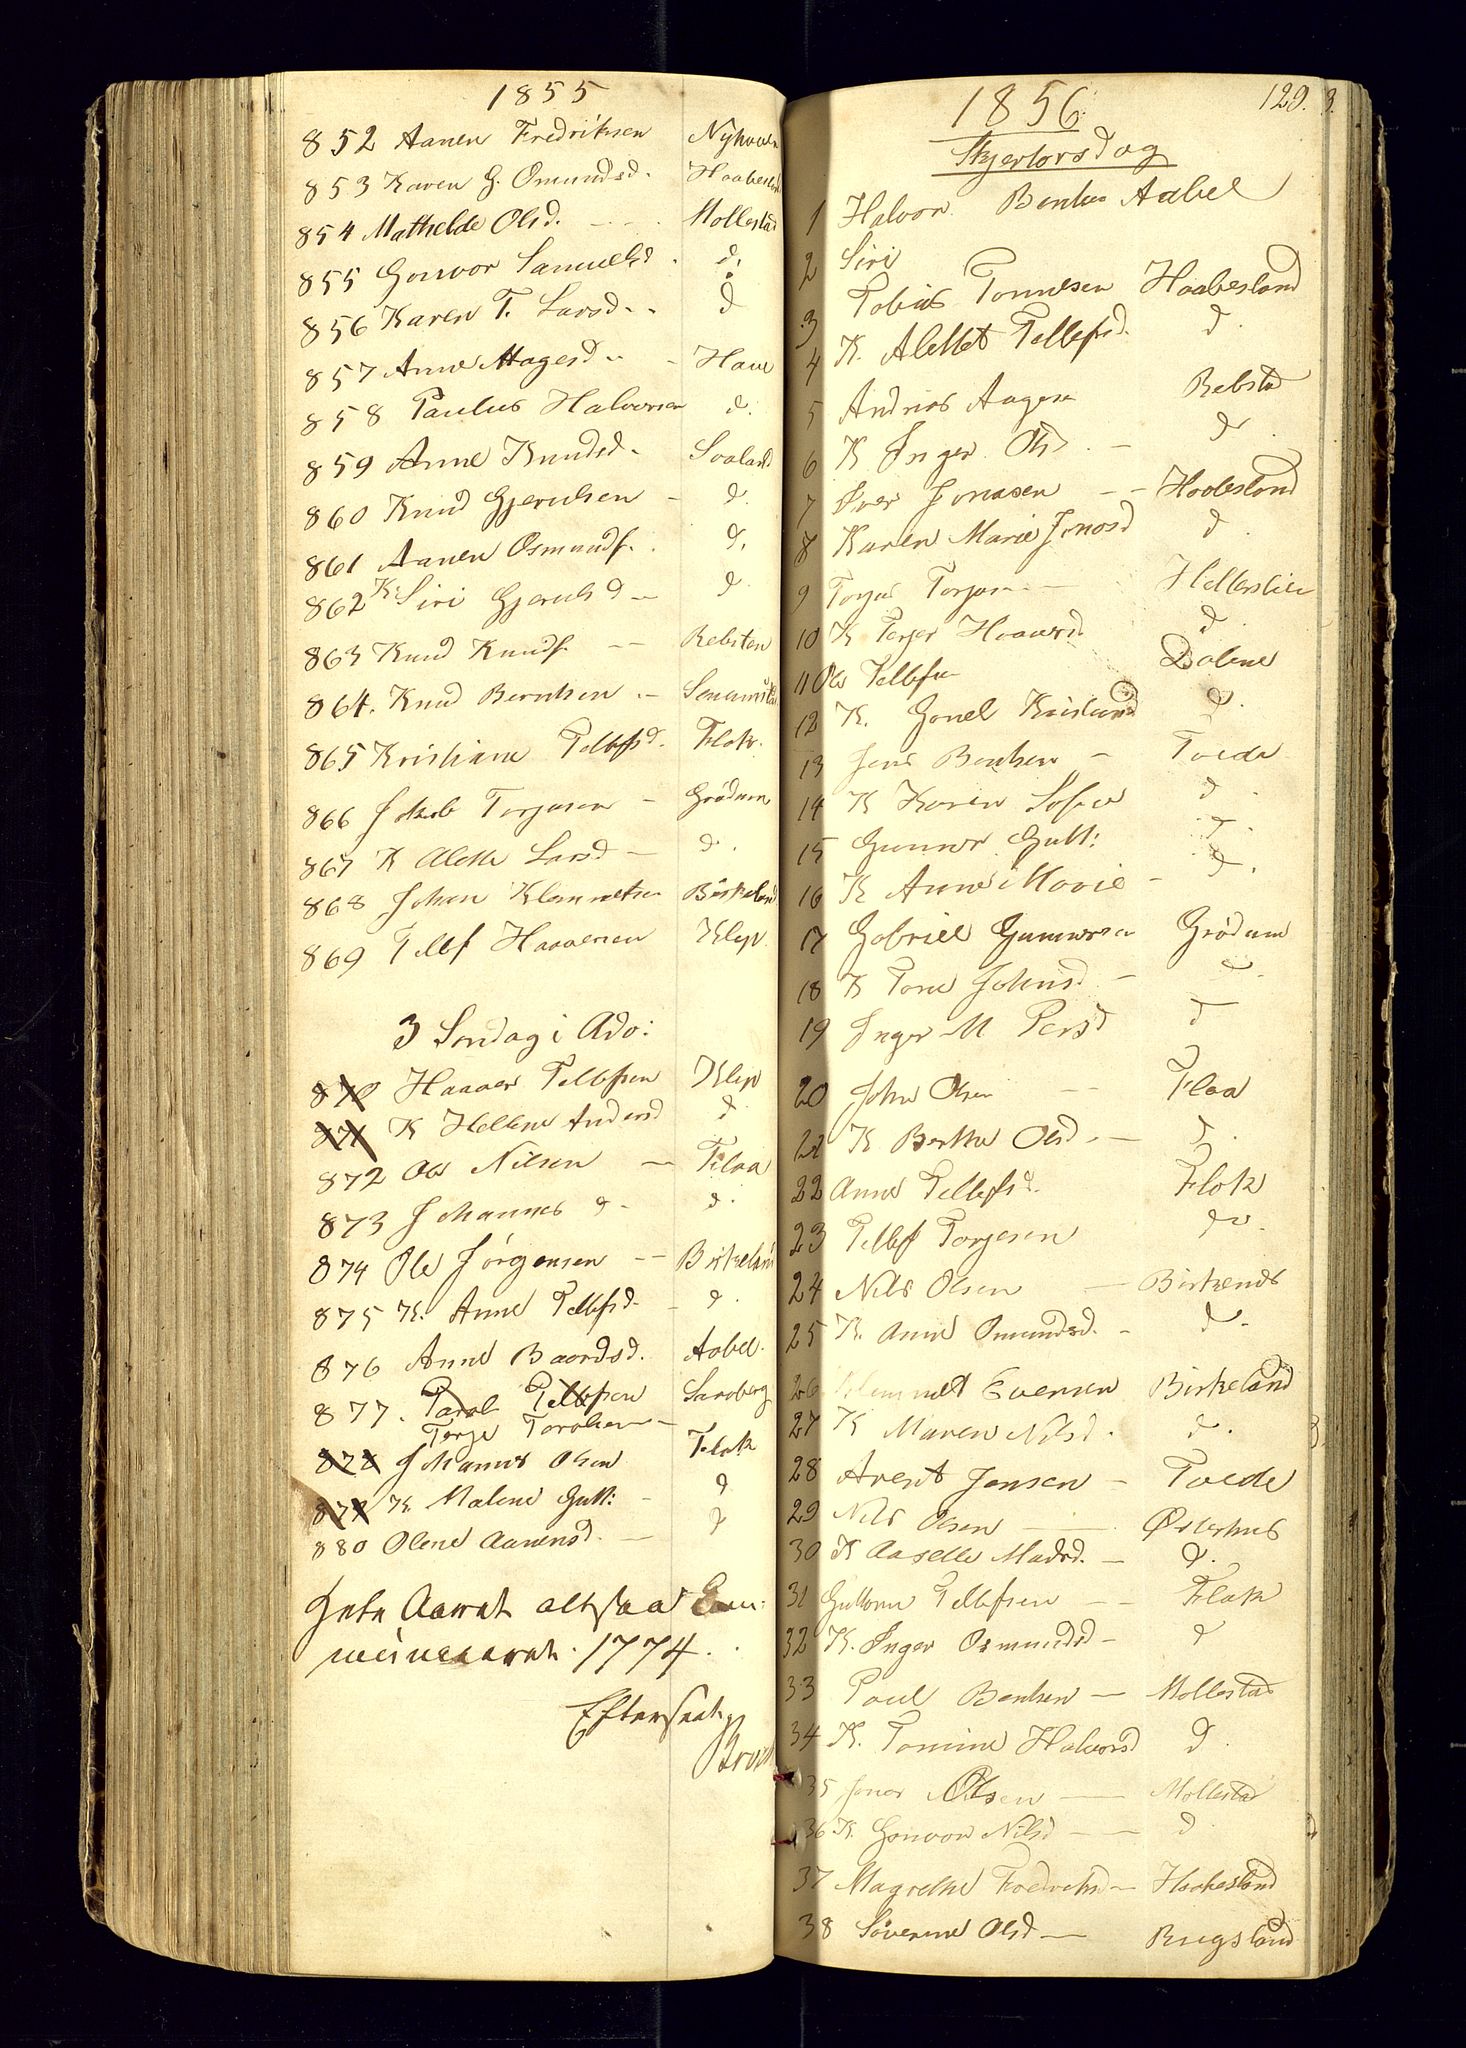 1855
852 Aanen Fredriksen Nyhaven
853 Karen G. Omundsd. Haabesland
854 Mathelde Olsd. Mollestad
855 Gonvor Samuelsd. d.
856 Karen T. Larsd. d
857 Anne Aagesd Haue
858 Paulus Halvorsen d.
859 Anne Knudsd. Svaland
860 Knud Gjerulsen d.
861 Aanen Osmundf. d.
862 K. Siri Gjerulsd d.
863 Knud Knudf. Rebsten
864. Knud Berntsen
865 Kristiane Tellefsd. Flak.
866 Jakob Torjusen Grödum
867 K Alette Larsd d.
868 Johan Klemmetsen Birkeland
869 Tellef Haavorsen Klep
3 Søndag i Adv:
870 Haaver Tellefsen Klep
871 K Hellene Andersd d
872 Ole Nilsen Flaa
873 Johannes d. d.
874 Ole Jörgensen Birkeland
875 K. Anne Tellefsd. d.
876 Anne Baardsd. Aabel.
877. Tellefsen Sandberg
Terje
878 Johannes Olsen Flak
879 K. Malene Gutt: d
880 Olene Aanensd. d
Hele Aaret altsaa Com:
municeret. 1774.
Efterseet
1856 129. 3.
Skjertorsdag
1 Halvor Bentsen Aabel
2 Siri
3 Tobias Tønnesen Haabesland
4 K. Alettet Tellefsd. d.
5 Andrias Aagesen Rebsten
6 K Inger Olsd. d.
7 Iver Jonasen Haabesland
8 Karen Marie Jonasd d.
9 Torjus Torjusen
10 K Haaversd d.
11 Ole Tellefsen Dölene
12 K. Gonel Kristensd d.
13 Jens Bentsen Tvede
14 K Karen Sofie d.
15 Gunner Gutt: d.
16 K Anne Marie d.
17 Gabriel Gunnersen Grödum
18 K Tone Johnsd d.
19 Inger M Persd d
20 John Olsen Flaa
21 K Berthe Olsd. d.
22 Anne Tellefsd. Flak
23 Tellef Torjesen do.
24 Nils Olsen
25 K. Anne Omundsd. d.
26 Klemmet Evensen Birkeland
27 K Maren Nilsd. d.
28 Arent Jensen Tvede
29 Nils Olsen Østerhus
30 K Aaselle Madsd. d.
31 Guttorm Tellefsen Flak
32 K. Inger Osmundsd d
33 Poul Bentsen Mollestad
34 K. Tomine Halvorsd d.
35 Jonas Olsen Mollestad
36 K. Gonvor Nilsd d
37 Magrethe Fredriksd Haabesland
38 Söverine Olsd Rugsland